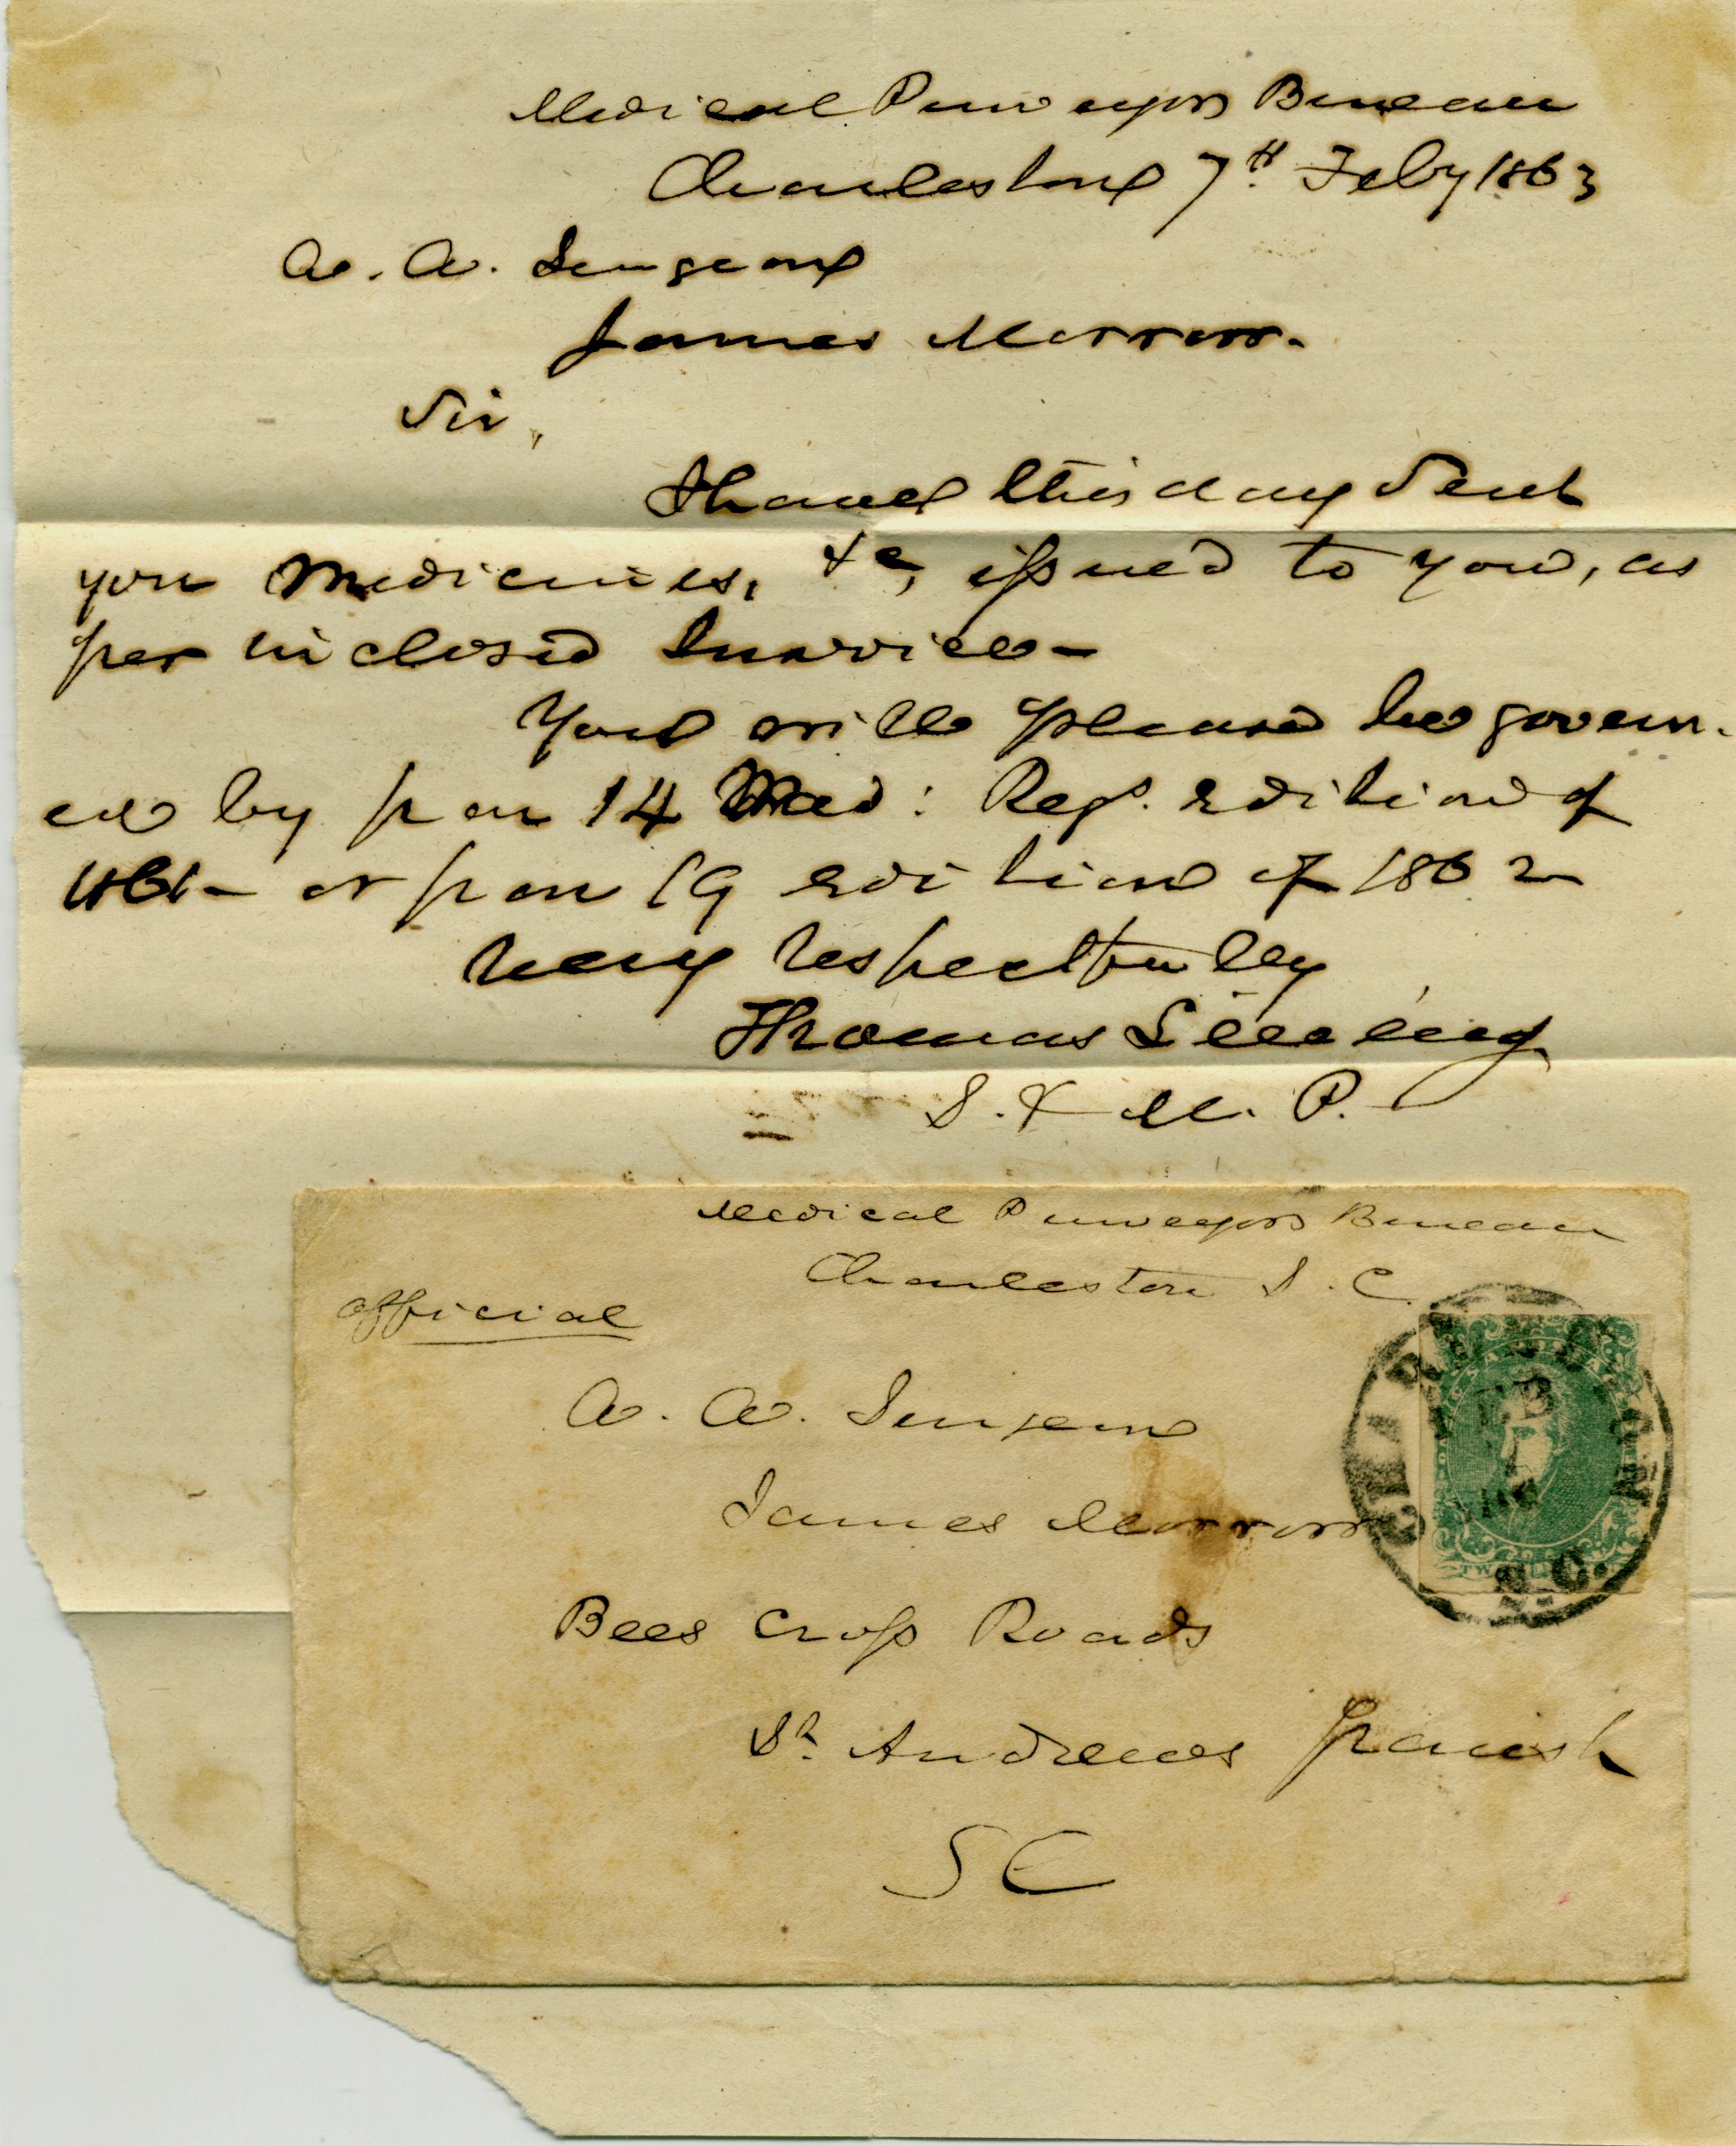 Medical Purveyors Bureau
Charleston 7th Feby 1863
A. A. Surgeon
James Morrow.
Sir,
I have this day Sent
you Medicines, &c, issued to you, as
per inclosed Invoice-
You will please be govern-
ed by par 14 Med: Regs. edition of
1861- or par 19 edition of 1862
Very respectfully
Thomas Linning
S. & M. P.
Medical Purveyors Bureau
Charleston S. C.
official
A. A. Surgeon
James Morrow
Bees Cross Roads
St. Andrews Parish
SC
CHARLESTON
FEB
S.C.